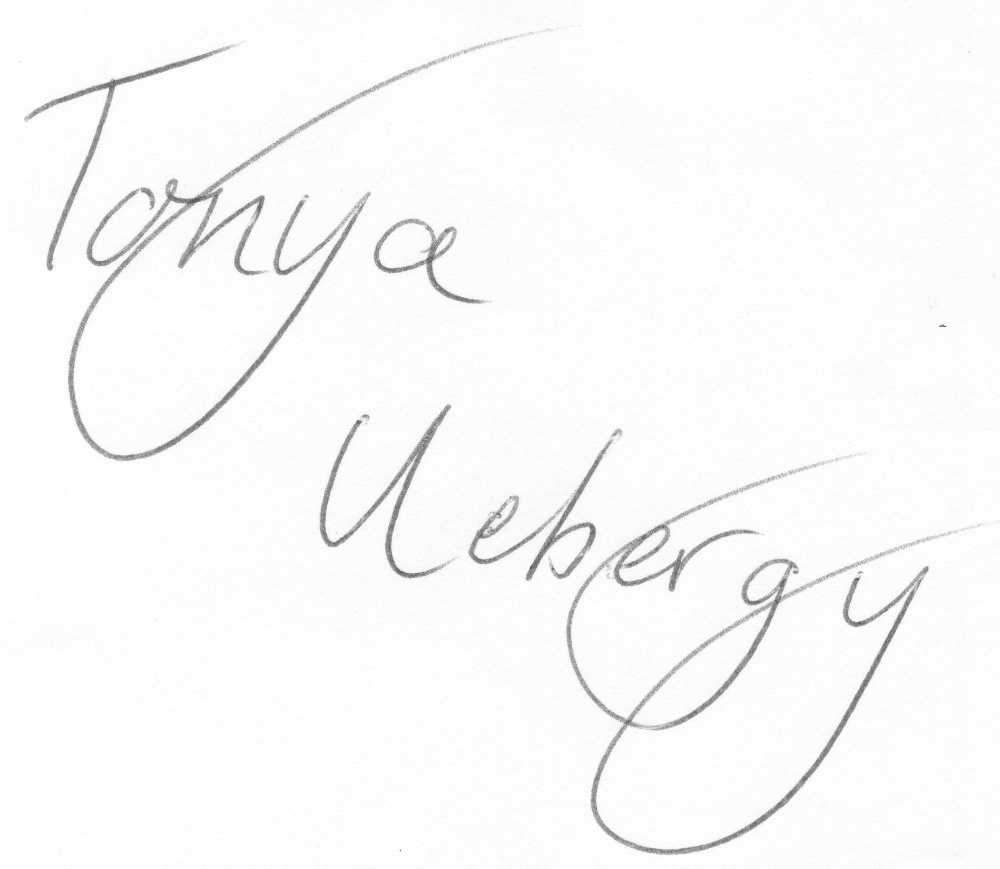 Tonya
Uebergy